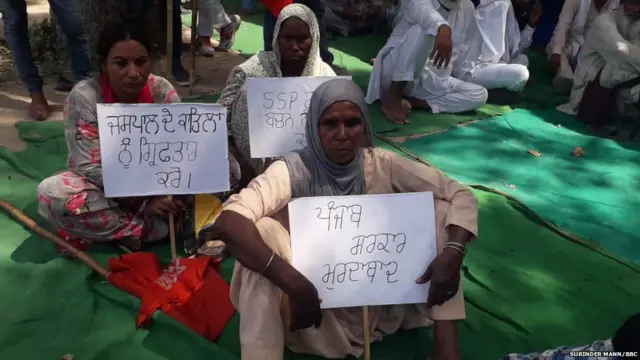 ਜਸਪਾਲ ਦੇ ਕਾਤਿਲਾਂ
ਨੂੰ ਗ੍ਰਿਫਤਾਰ
ਕਰੋ।
SSP
ਪੰਜਾਬ
ਸਰਕਾਰ
ਮੁਰਦਾਬਾਦ
SURINDER MANN/BBC